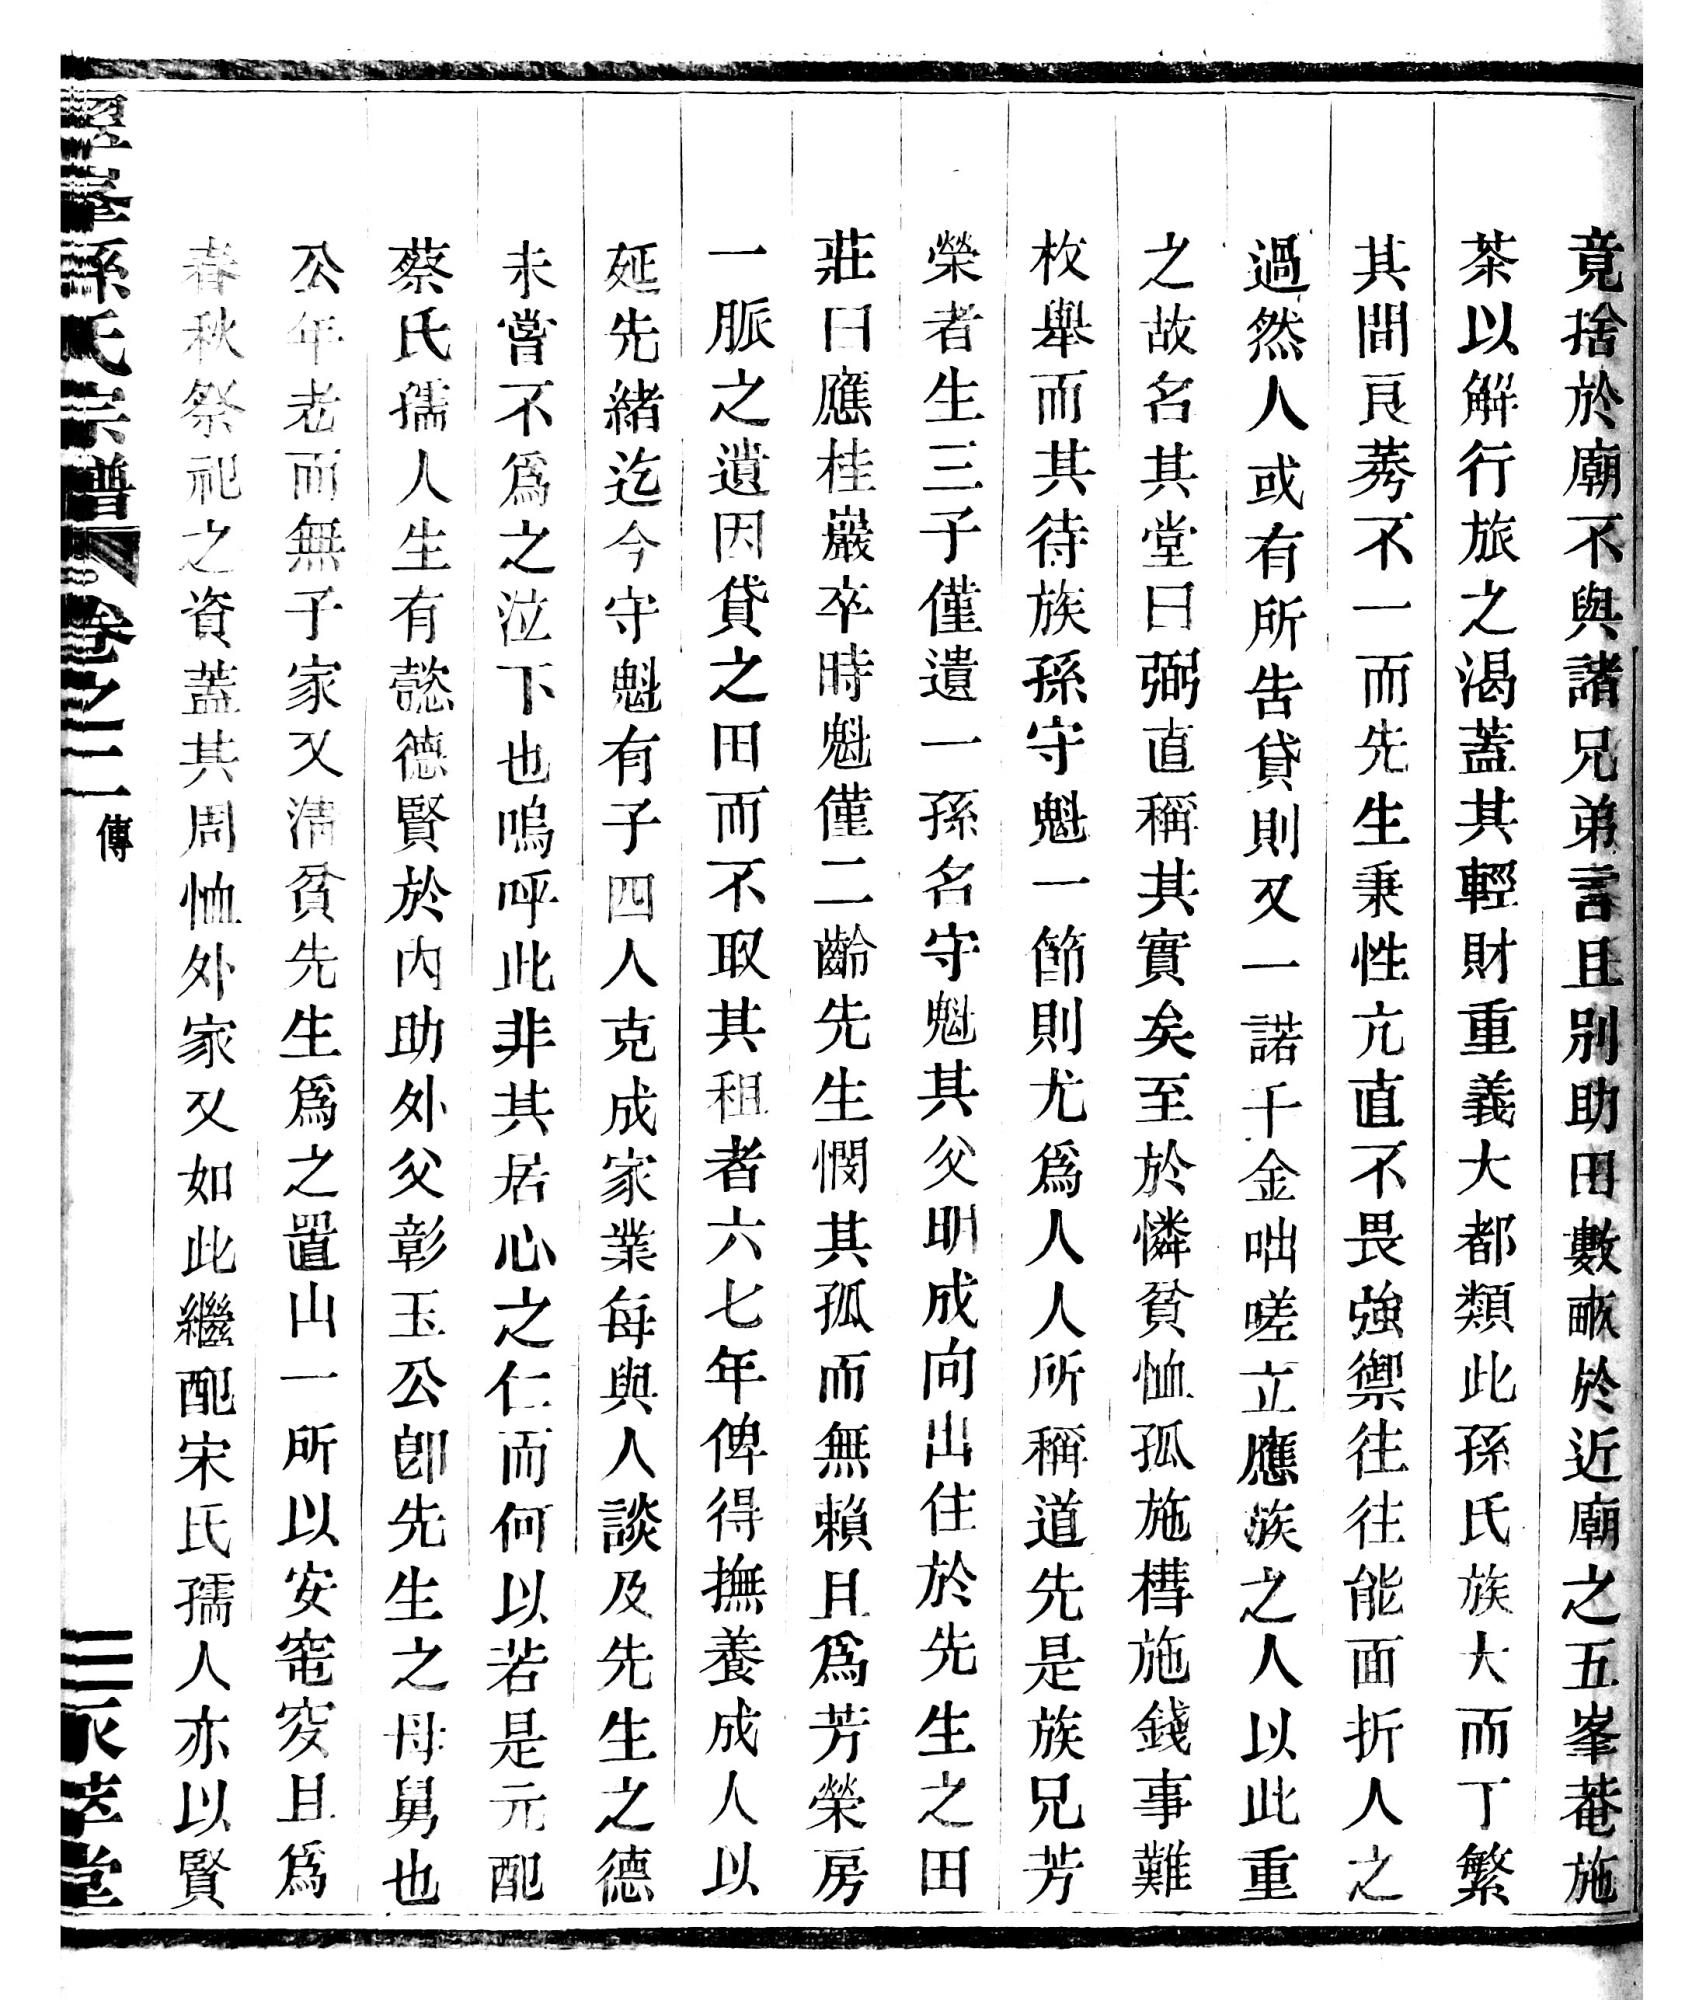 竟捨於廟不與諸兄弟言且別助田數畝於近廟之五峯菴施
茶以解行旅之渴蓋其輕財重義大都類此孫氏族大而丁繁
其間良莠不一而先生秉性亢直不畏強禦往往能面折人之
過然人或有所告貸則又一諾千金咄嗟立應族之人以此重
之故名其堂曰弼直稱其實矣至於憐貧恤孤施槥施錢事難
枚舉而其待族孫守魁一節則尤爲人人所稱道先是族兄芳
榮者生三子僅遺一孫名守魁其父明成向出住於先生之田
莊曰應桂巖卒時魁僅二齡先生憫其孤而無賴且爲芳榮房
一脈之遺因貸之田而不取其租者六七年俾得撫養成人以
延先緒迄今守魁有子四人克成家業每與人談及先生之德
未嘗不爲之泣下也嗚呼此非其居心之仁而何以若是元配
蔡氏孺人生有懿德賢於內助外父彰玉公卽先生之母舅也
公年老而無子家又清貧先生爲之置山一所以安窀穸且爲
春秋祭祀之資蓋其周恤外家又如此繼配宋氏孺人亦以賢
孫氏宗譜 卷之二 傳 三 萃堂